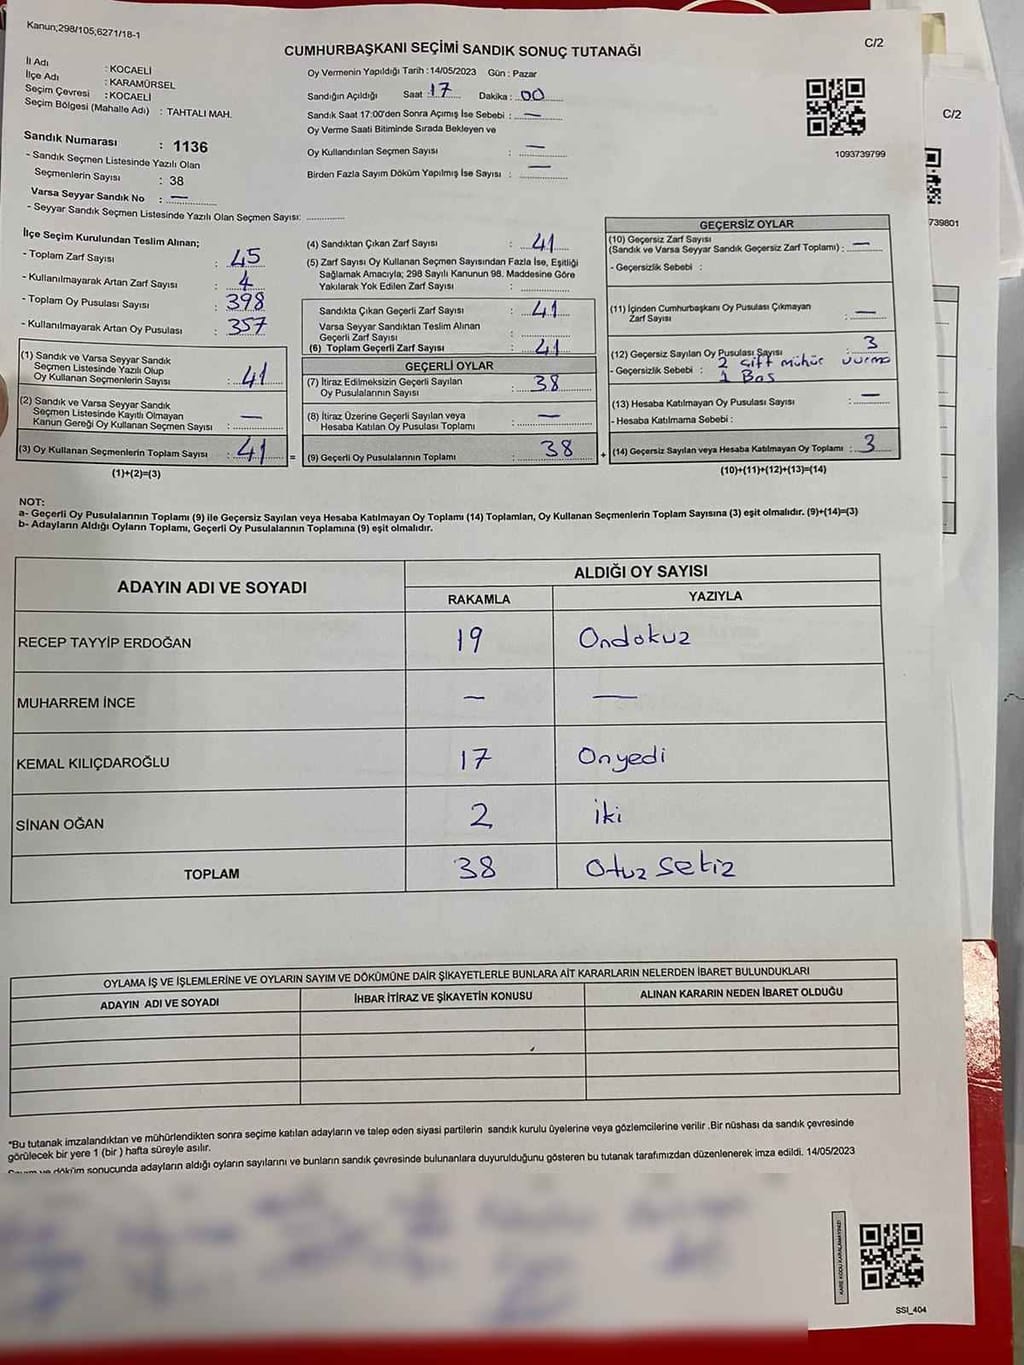 Kanun;298/105;6271/18-1
C/2
CUMHURBAŞKANI SEÇİMİ SANDIK SONUÇ TUTANAĞI
İl Adı : KOCAELİ
İlçe Adı : KARAMÜRSEL
Seçim Çevresi : KOCAELİ
Seçim Bölgesi (Mahalle Adı) : TAHTALI MAH.
Sandık Numarası : 1136
- Sandık Seçmen Listesinde Yazılı Olan
Seçmenlerin Sayısı : 38
Varsa Seyyar Sandık No : —
- Seyyar Sandık Seçmen Listesinde Yazılı Olan Seçmen Sayısı: ..............
Oy Vermenin Yapıldığı Tarih : 14/05/2023 Gün : Pazar
Sandığın Açıldığı Saat 17 Dakika : 00
Sandık Saat 17:00'den Sonra Açımış İse Sebebi : —
Oy Verme Saati Bitiminde Sırada Bekleyen ve
Oy Kullandırılan Seçmen Sayısı : —
Birden Fazla Sayım Döküm Yapılmış İse Sayısı : —
1093739799
C/2
739801
İlçe Seçim Kurulundan Teslim Alınan;
- Toplam Zarf Sayısı : 45
- Kullanılmayarak Artan Zarf Sayısı : 4
- Toplam Oy Pusulası Sayısı : 398
- Kullanılmayarak Artan Oy Pusulası : 357
(1) Sandık ve Varsa Seyyar Sandık
Seçmen Listesinde Yazılı Olup
Oy Kullanan Seçmenlerin Sayısı : 41
(2) Sandık ve Varsa Seyyar Sandık
Seçmen Listesinde Kayıtlı Olmayan
Kanun Gereği Oy Kullanan Seçmen Sayısı : —
(3) Oy Kullanan Seçmenlerin Toplam Sayısı : 41
(1)+(2)=(3)
(4) Sandıktan Çıkan Zarf Sayısı : 41
(5) Zarf Sayısı Oy Kullanan Seçmen Sayısından Fazla İse, Eşitliği
Sağlamak Amacıyla; 298 Sayılı Kanunun 98. Maddesine Göre
Yakılarak Yok Edilen Zarf Sayısı : ..............
Sandıkta Çıkan Geçerli Zarf Sayısı : 41
Varsa Seyyar Sandıktan Teslim Alınan
Geçerli Zarf Sayısı : ..............
(6) Toplam Geçerli Zarf Sayısı : 41
GEÇERLİ OYLAR
(7) İtiraz Edilmeksizin Geçerli Sayılan
Oy Pusulalarının Sayısı : 38
(8) İtiraz Üzerine Geçerli Sayılan veya
Hesaba Katılan Oy Pusulası Toplamı : —
= (9) Geçerli Oy Pusulalarının Toplamı : 38
GEÇERSİZ OYLAR
(10) Geçersiz Zarf Sayısı
(Sandık ve Varsa Seyyar Sandık Geçersiz Zarf Toplamı) : —
- Geçersizlik Sebebi :
(11) İçinden Cumhurbaşkanı Oy Pusulası Çıkmayan
Zarf Sayısı : —
(12) Geçersiz Sayılan Oy Pusulası Sayısı : 3
- Geçersizlik Sebebi : 2 çift mühür vurma
1 Boş
(13) Hesaba Katılmayan Oy Pusulası Sayısı : —
- Hesaba Katılmama Sebebi :
+ (14) Geçersiz Sayılan veya Hesaba Katılmayan Oy Toplamı : 3
(10)+(11)+(12)+(13)=(14)
NOT:
a- Geçerli Oy Pusulalarının Toplamı (9) ile Geçersiz Sayılan veya Hesaba Katılmayan Oy Toplamı (14) Toplamları, Oy Kullanan Seçmenlerin Toplam Sayısına (3) eşit olmalıdır. (9)+(14)=(3)
b- Adayların Aldığı Oyların Toplamı, Geçerli Oy Pusulalarının Toplamına (9) eşit olmalıdır.
ADAYIN ADI VE SOYADI
ALDIĞI OY SAYISI
RAKAMLA YAZIYLA
RECEP TAYYİP ERDOĞAN 19 Ondokuz
MUHARREM İNCE — —
KEMAL KILIÇDAROĞLU 17 Onyedi
SİNAN OĞAN 2 iki
TOPLAM 38 Otuz sekiz
OYLAMA İŞ VE İŞLEMLERİNE VE OYLARIN SAYIM VE DÖKÜMÜNE DAİR ŞİKAYETLERLE BUNLARA AİT KARARLARIN NELERDEN İBARET BULUNDUKLARI
ADAYIN ADI VE SOYADI İHBAR İTİRAZ VE ŞİKAYETİN KONUSU ALINAN KARARIN NEDEN İBARET OLDUĞU
*Bu tutanak imzalandıktan ve mühürlendikten sonra seçime katılan adayların ve talep eden siyasi partilerin sandık kurulu üyelerine veya gözlemcilerine verilir .Bir nüshası da sandık çevresinde
görülecek bir yere 1 (bir ) hafta süreyle asılır.
döküm sonucunda adayların aldığı oyların sayılarını ve bunların sandık çevresinde bulunanlara duyurulduğunu gösteren bu tutanak tarafımızdan düzenlenerek imza edildi. 14/05/2023
KARE KODU KARALAMAYINIZ!
SSI_404